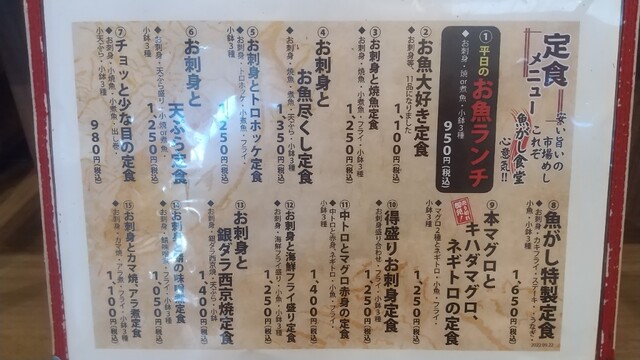 定食
メニュー
安い旨いの
市場め
これぞ
魚がし食堂
心意気!!
① 平日の
お魚ランチ
◆お刺身・焼or煮魚・小鉢3種
950円(税込)
② お魚大好き定食
◆お刺身等、11品になりました
1,100円(税込)
③ お刺身と焼魚定食
◆お刺身・焼魚・小煮魚・フライ・
小鉢3種
1,250円(税込)
④ お刺身と
お魚尽くし定食
◆お刺身・焼魚・煮魚・天ぷら・小鉢3種
1,350円(税込)
⑤ お刺身とトロホッケ定食
◆お刺身・トロホッケ・小煮魚・フライ・
小鉢3種
1,250円(税込)
⑥ お刺身と
天ぷら定食
◆お刺身・天ぷら盛り・小焼or煮魚・
小鉢3種
1,250円(税込)
⑦ チョッと少な目の定食
◆お刺身・小焼魚・小煮魚・出し巻・
小天ぷら・小鉢3種
980円(税込)
⑧ 魚がし特製定食
◆お刺身・カキフライ・ステーキ・うなぎ・
小鉢3種
1,650円(税込)
⑨ 本マグロと
キハダマグロ、
ネギトロの定食
◆マグロ2種とネギトロ・小魚・フライ・
小鉢3種
1,350円(税込)
⑩ 得盛りお刺身定食
◆お刺身盛り合わせ・フライ・小鉢3種
1,250円(税込)
⑪ 中トロとマグロ赤身の定食
◆中トロと赤身、ネギトロ・小魚・フライ・
小鉢3種
1,400円(税込)
⑫ お刺身と海鮮フライ盛り定食
◆お刺身・海鮮フライ盛り・小魚・小鉢3種
1,250円(税込)
⑬ お刺身と
銀ダラ西京焼定食
◆お刺身・銀ダラ西京焼・天ぷら・小鉢
1,400円(税込)
⑭ お刺身と鯖の味噌煮定食
◆お刺身・鯖味噌煮・フライ・小鉢3種
1,050円(税込)
⑮ お刺身とカマ焼、アラ煮定食
◆お刺身・カマ焼・アラ煮・フライ・小鉢3種
1,100円(税込)